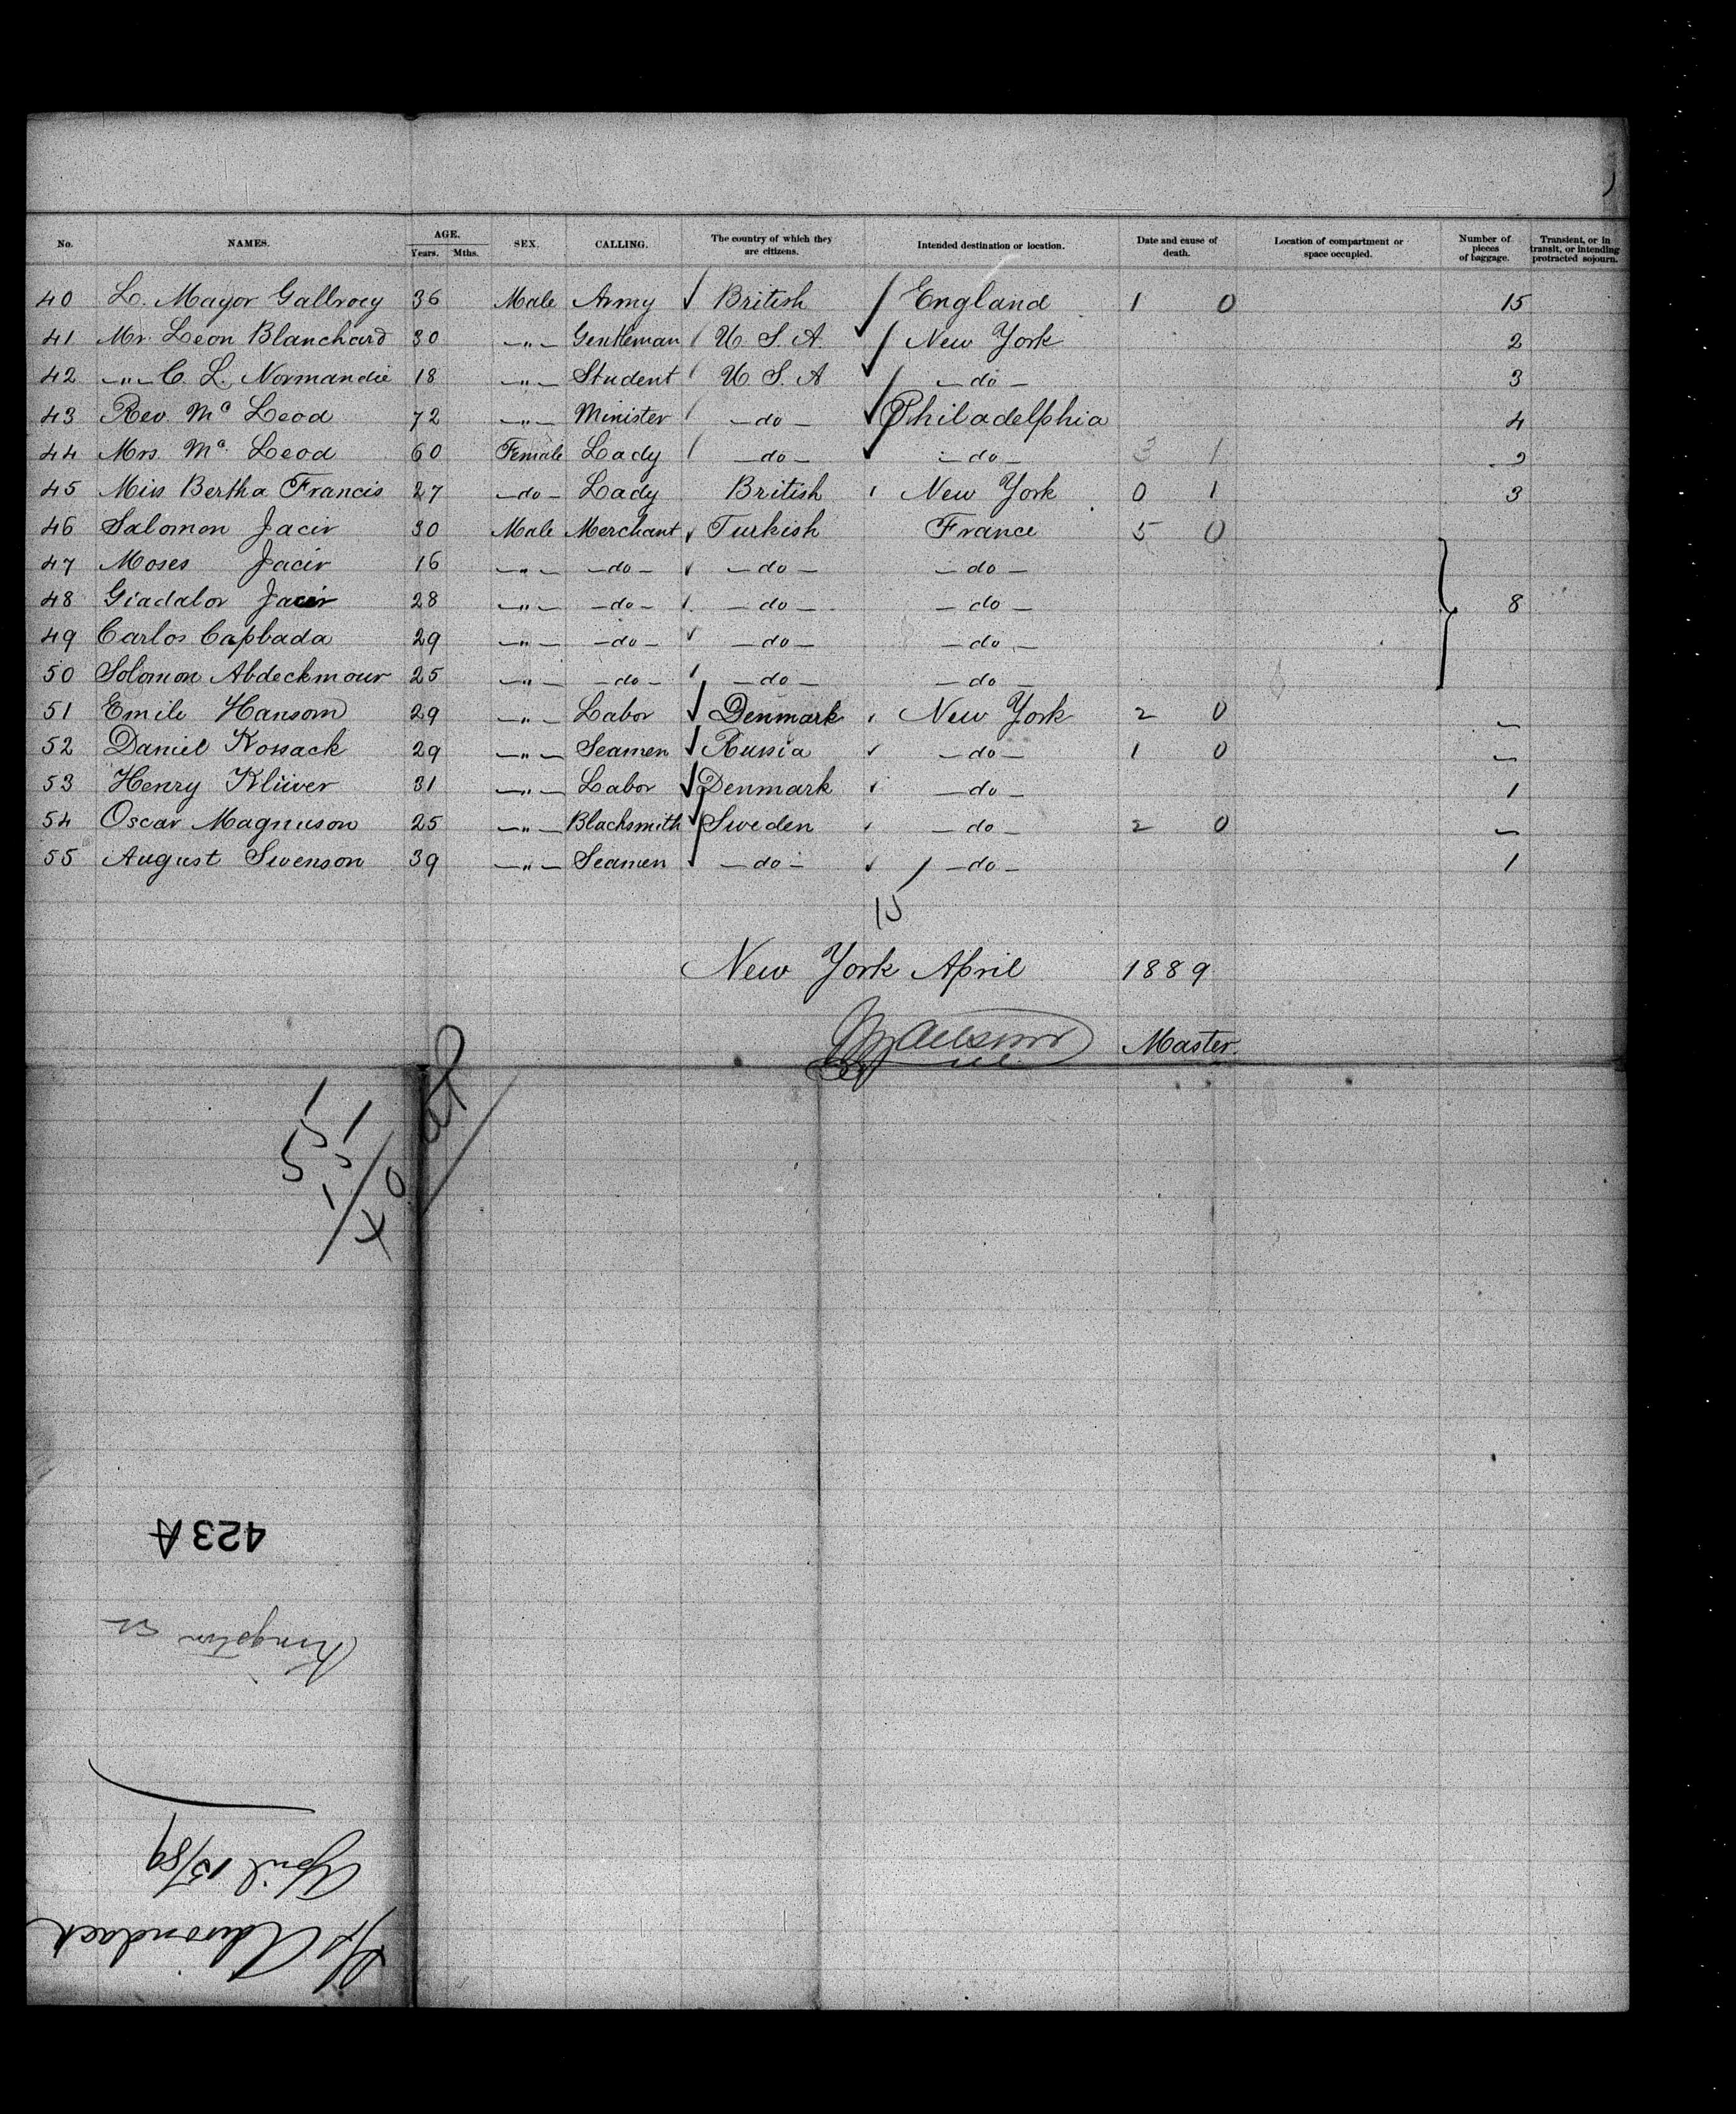 No. NAMES. AGE. Years. Mths. SEX. CALLING. The country of which they are citizens. Intended destination or location. Date and cause of death. Location of compartment or space occupied. Number of pieces of baggage. Transient, or in transit, or intending protracted sojourn.
40 L. Mayor Gallroey 36 Male Army British England 1 0 15
41 Mr. Leon Blanchard 30 —"— Gentleman U. S. A. New York 2
42 —"— C. L. Normandie 18 —"— Student U. S. A —do— 3
43 Rev. Mc Leod 72 —"— Minister —do— Philadelphia 4
44 Mrs. Mc Leod 60 Female Lady —do— —do— 3 1 2
45 Miss Bertha Francis 27 —do— Lady British New York 0 1 3
46 Salomon Jacir 30 Male Merchant Turkish France 5 0
47 Moses Jacir 16 —"— —do— —do— —do—
48 Giadalor Jacir 28 —"— —do— —do— —do— 8
49 Carlos Capbada 29 —"— —do— —do— —do—
50 Solomon Abdeckmour 25 —"— —do— —do— —do—
51 Emile Hansom 29 —"— Labor Denmark New York 2 0 —
52 Daniel Kossack 29 —"— Seamen Russia —do— 1 0 —
53 Henry Klüver 31 —"— Labor Denmark —do— 1
54 Oscar Magnuson 25 —"— Blacksmith Sweden —do— 2 0 —
55 August Swenson 39 —"— Seamen —do— —do— 1
15
New York April 1889
Master.
423A
Kingston
April 15/89
Adirondack